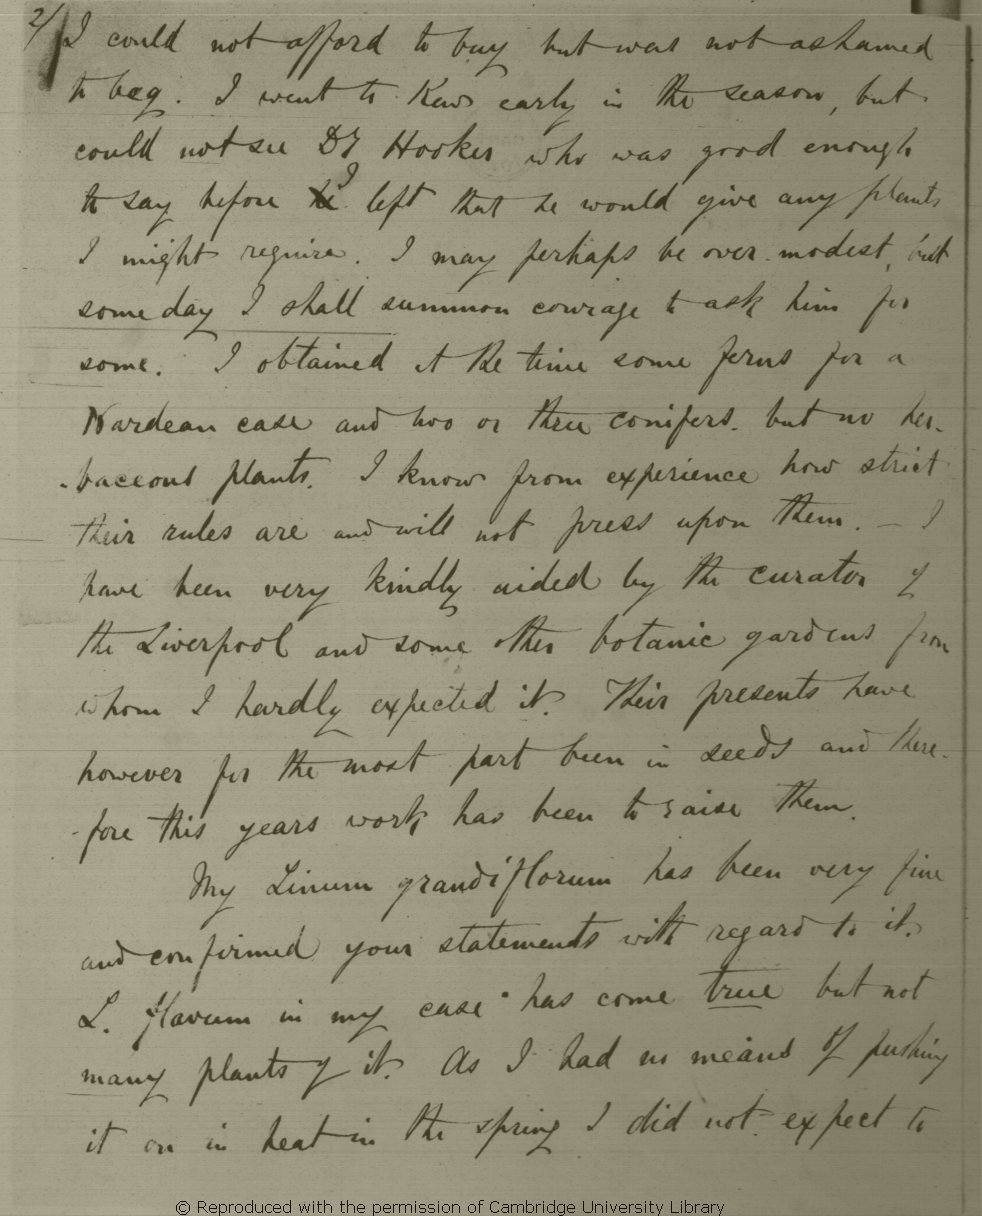 2/
I could not afford to buy but was not ashamed
to beg. I went to Kew early in the season, but
could not see Dr Hooker who was good enough
to say before he I left that he would give any plants
I might require. I may perhaps be over modest, but
some day I shall summon courage to ask him for
some. I obtained at the time some ferns for a
Wardean case and two or three conifers. but no her-
-baceous plants. I know from experience how strict
their rules are and will not press upon them. — I
have been very kindly aided by the curator of
the Liverpool and some other botanic gardens from
whom I hardly expected it. Their presents have
however for the most part been in seeds and there-
-fore this years work has been to raise them.
My Linum grandiflorum has been very fine
and confirmed your statements with regard to it.
L. flavum in my case has come true but not
many plants of it. As I had no means of pushing
it on in heat in the spring I did not expect to
© Reproduced with the permission of Cambridge University Library